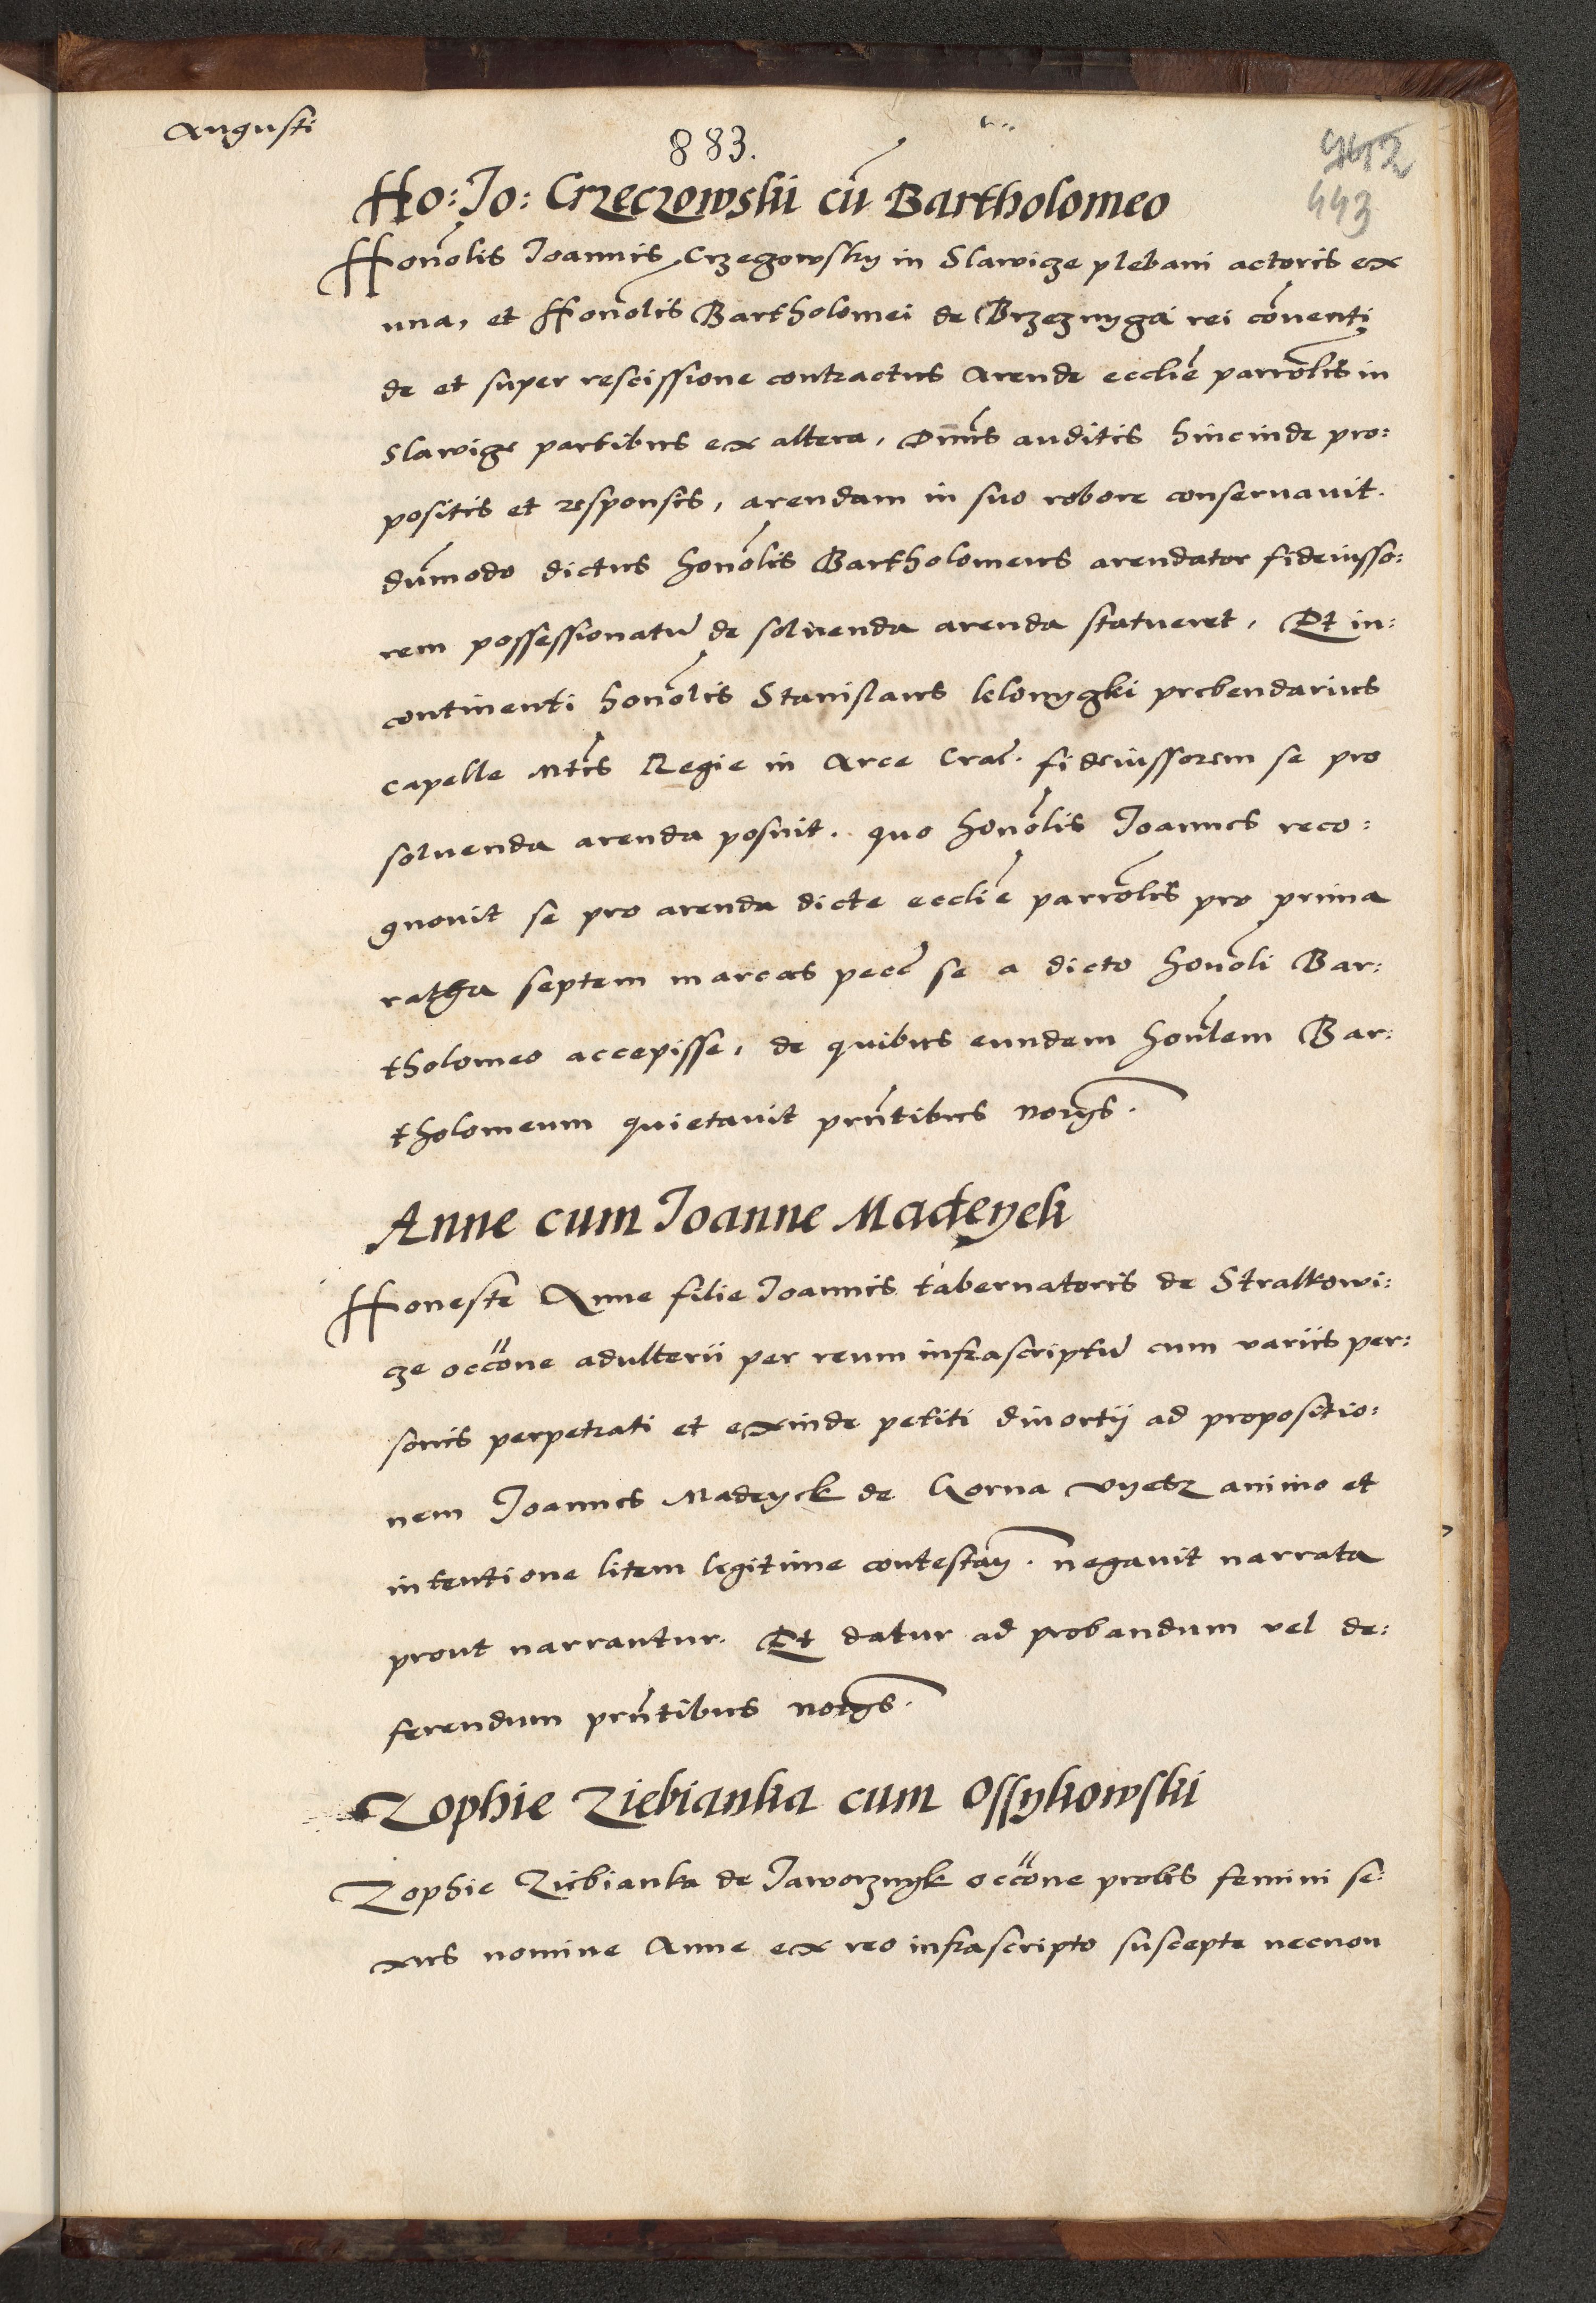 Augusti
883.
442
443
Ho: Jo: Crzeczowski cu͂ Bartholomeo
Honolis Joannis Crzeczowsky in Slawicze plebani actoris ex
una, et Honolis Bartholomei de Brzeznycza rei co͂uenti
de et super rescissione contractus Arende ecclie͂ parrolis in
Slawicze partibus ex altera, Dnus auditis hincinde pro:
positis et responsis, arendam in suo robore conseruauit.
du͂modo dictus honolis Bartholomeus arendator fideiusso:
rem possessionatu͂ de soluenda arenda statueret, Et in:
continenti honolis Stanislaus klonyczki prebendarius
capelle Mtis Regie in Arce Crac. fideiussorem se pro
soluenda arenda posuit. quo honolis Joannes reco:
gnouit se pro arenda dicte ecclie͂ parrolis pro prima
ratha septem marcas pecc se a dicto honoli Bar:
tholomeo accepisse, de quibus eundem honlem Bar:
tholomeum quietauit pnntibus
Anne cum Joanne Madeyek
Honeste Anne filie Joannis tabernatoris de Stralkowi:
cze occo͂ne adulterii per reum infrascriptu͂ cum variis per:
sonis perpetrati et exinde petiti diuortij ad propositio:
nem Joannes Madeyck de Gorna vyetz animo et
intentione litem legitime contestan͂. negauit narrata
prout narrantur. Et datur ad probandum vel de:
ferendum pnntibus
Zophie Ziebianka cum Ossykowski
Zophie Ziebianka de Jaworznyk occo͂ne prolis femini se:
xus nomine Anne ex reo infrascripto suscepte necnon